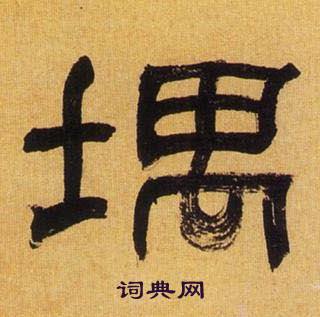 堣
词典网